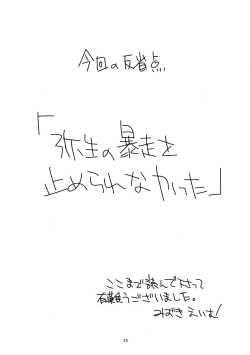 今回の反省点
「弥生の暴走を
止められなかった」
ここまで読んで下さって
有難うございました。
みずき えいむ!